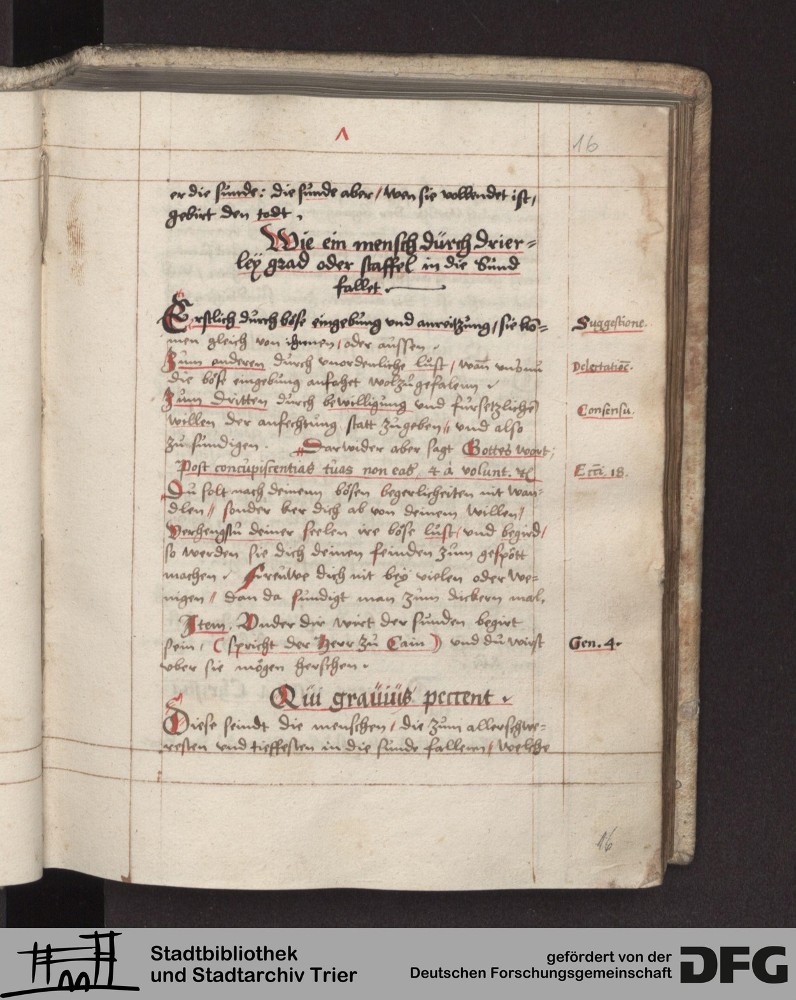 16
er die sunde: die sunde aber/ wen sie vollendet ist,
gebirt den todt.
Wie ein mensch durch drier=
leÿ grad oder staffel in die Sund
fallet.
Erstlich durch böse eingebung vnd anreitzung/ sie ko=
Suggestione.
men gleich von innen/ oder aussen.
Zum anderen durch vnordenliche lust/ wan vns nu
Delectatioē.
die böse eingebung anfahet wolzugefallenn.
Zum dritten durch bewilligung vnd fursetzlichē
Consensu.
willen der anfechtung statt zugeben// vnd also
zu sundigen. Darwider aber sagt Gottes wort;
Post concupiscentias tuas non eas, & à volunt. &c
Eccī. 18.
Du solt nach deinenn bösen begerlicheiten nit wan=
dlen// sonder ker dich ab von deinem willen/
Verhengstu deiner seelen ire böse lust/ vnd begird/
so werden sie dich deinen feinden zum gespött
machen. Freuwe dich nit beÿ vielen oder we=
nigen// dan da sundigt man zum dickern mal.
Item. Vnder dir wirt der sunden begirt
sein, (spricht der Herr zu Cain) vnd du wirst
Gen. 4.
vber sie mögen herschen.
Qui grauius peccent.
Diese seindt die menschen, die zum allerschwe=
resten vnd tieffesten in die sunde fallenn/ welche
16
Stadtbibliothek
und Stadtarchiv Trier
gefördert von der
Deutschen Forschungsgemeinschaft
DFG